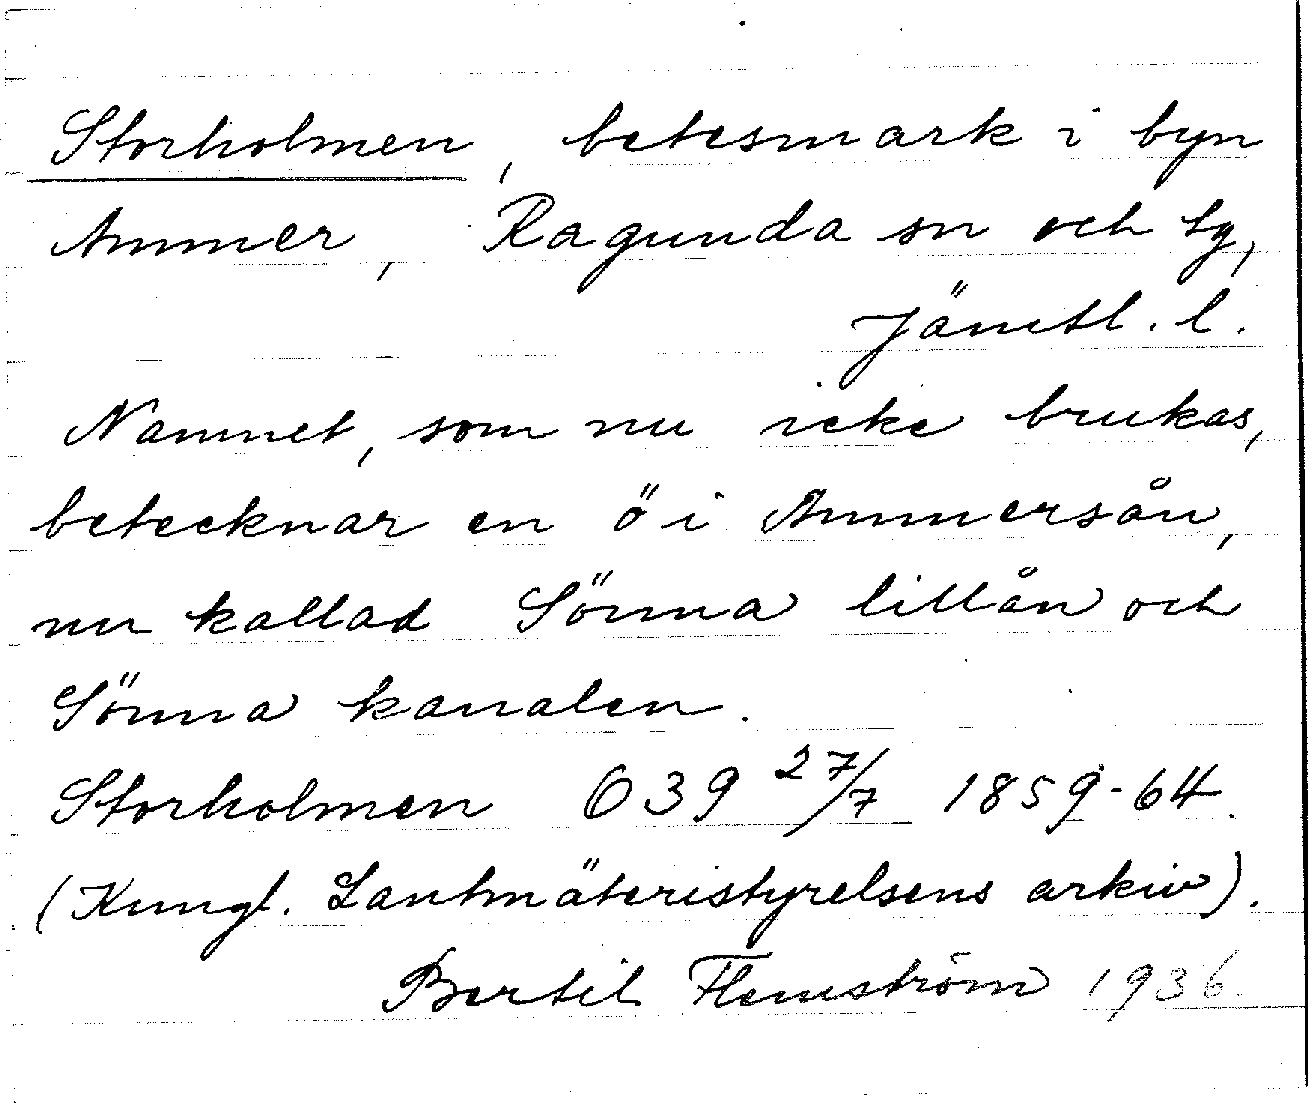 Storholmen, betesmark i byn
Ammer, Ragunda sn och tg,
Jämtl. l.
Namnet, som nu icke brukas,
betecknar en ö i Ammersån,
nu kallad Sönna lillån och
Sönna kanalen.
Storholmen O39 27/7 1859-64.
(Kungl. Lantmäteristyrelsens arkiv).
Bertil Flemström 1936.